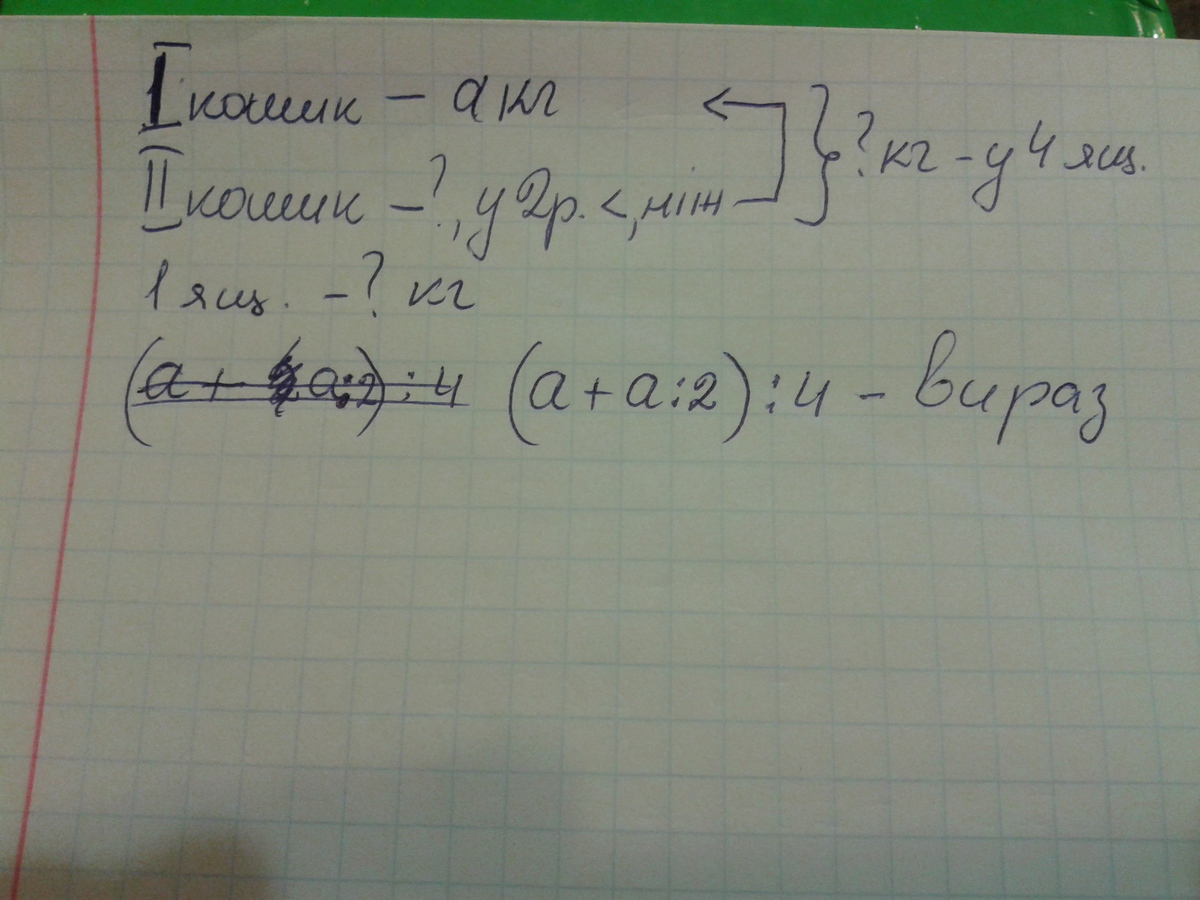 I кошик – a кг
II кошик – ?, у 2р. <, ніж
} ? кг – у 4 ящ.
1 ящ. – ? кг
(a + a:2):4 (a + a:2):4 – вираз